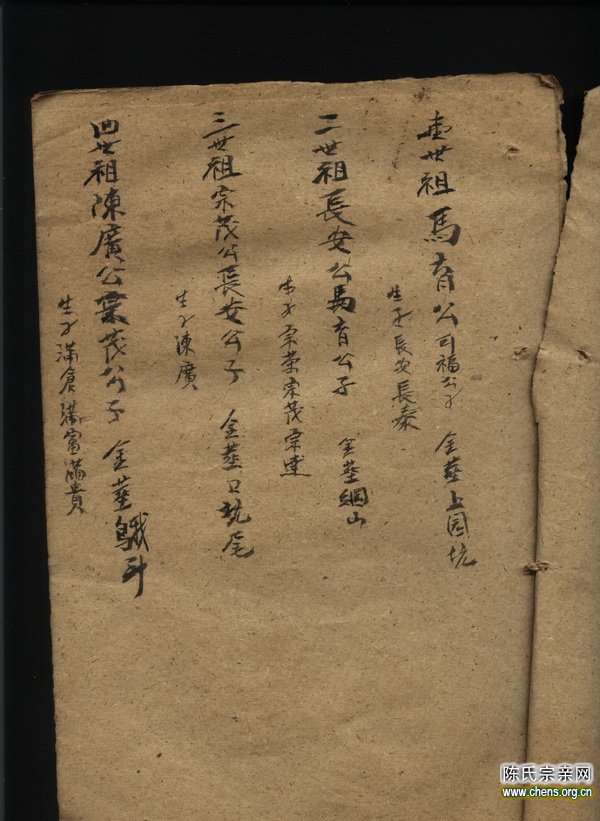 壹世祖馬育公司福公子 仝塟上园坑
生子長安長泰
二世祖長安公馬育公子 仝塟綱山
生子宗荣宗茂宗達
三世祖宗茂公長安公子 仝塟口坑尾
生子陳廣
四世祖陳廣公宗茂公子 仝塟鵝斗
生子满倉满富满貴
陈氏宗亲网
www.chens.org.cn